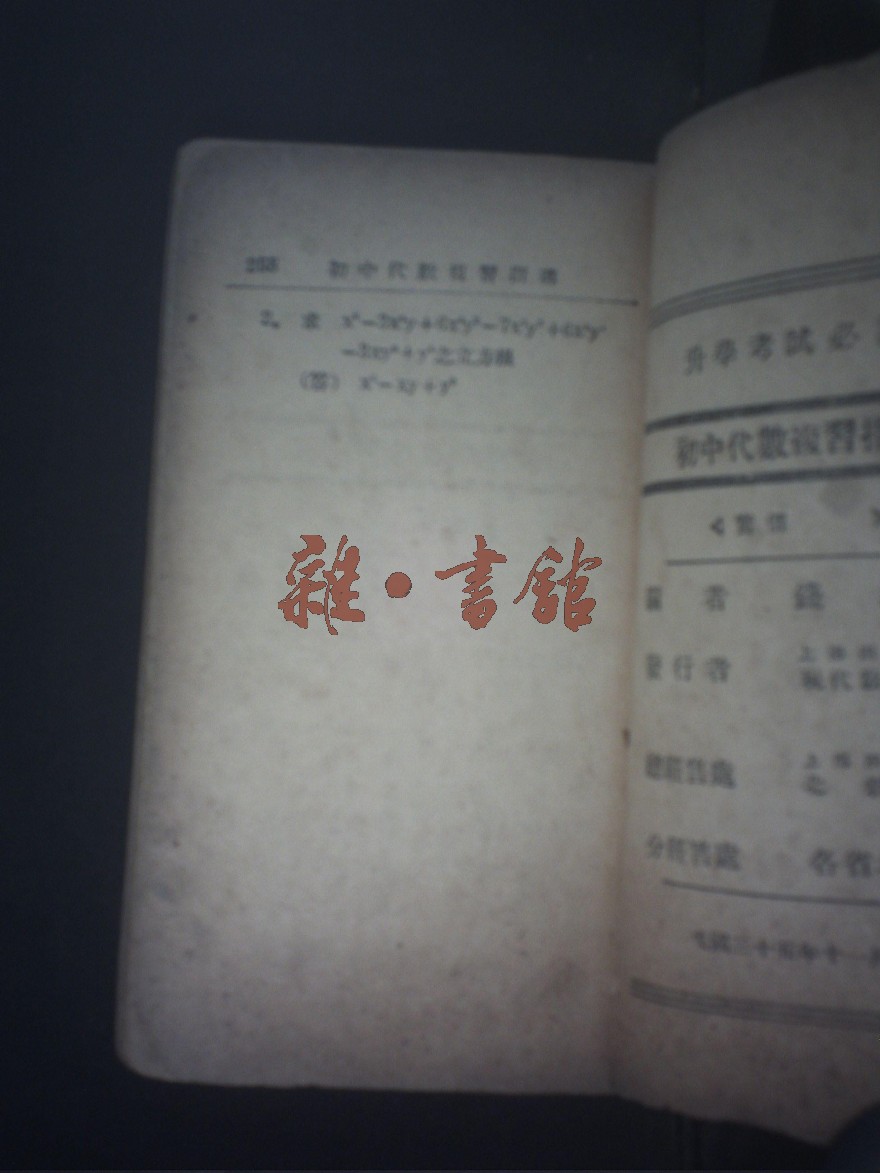 初中代數複習指導
2. 求 x⁶−3x⁵y+6x⁴y²−7x³y³+6x²y⁴
−3xy⁵+y⁶之立方根
(答) x²−xy+y²
雜·書館
升學考試必
初中代數複習指
實價
著者
發行者 上海
現代
總經售處 上海
分經售處 各省
民國三十五年十一月